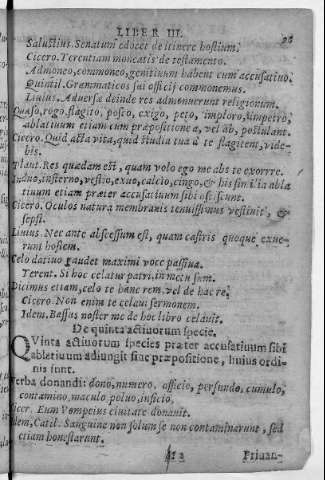 LIBER III.
Salustius. Senatum edocet de itinere hostium.
Cicero. Terentiam moneatis de testamento.
Admoneo, commoneo, genitiuum habent cum accusatiuo.
Quintil. Grammaticos sui officij commonemus.
Liuius. Aduersæ deinde res admonuerunt religionum.
Quæso, rogo, flagito, posco, exigo, peto, imploro, impetro,
ablatiuum etiam cum præpositione a, vel ab, postulant.
Cicero. Quid ætas vita, quid studia tua à te flagitent, vide-
bis.
Plant. Res quædam est, quam volo ego me abs te exorare.
Induo, insterno, vestio, exuo, calcio, cingo, & his similia abla
tiuum etiam præter accusatiuum sibi asciscunt.
Cicero. Oculos natura membranis tenuissimis vestiuit, &
sepsit.
Liuius. Nec ante abscessum est, quam castris quoque exue-
runt hostem.
Celo datiuo gaudet maximi voce passiua.
Terent. Si hoc celatur patri, in metu sum.
Dicimus etiam, celo te hanc rem, vel de hac re.
Cicero. Non enim te celaui sermonem.
Idem. Bassus noster me de hoc libro celauit.
De quinta actiuorum specie.
QVinta actiuorum species præter accusatiuum sibi
ablatiuum adiungit sine præpositione, huius ordi-
nis sunt.
Verba donandi: dono, numero, officio, perfundo, cumulo,
contamino, maculo, poluo, inficio.
Cicer. Eum Pompeius ciuitate donauit.
Idem, Catil. Sanguine non solum se non contaminarunt, sed
etiam honestarunt.
Priuan-